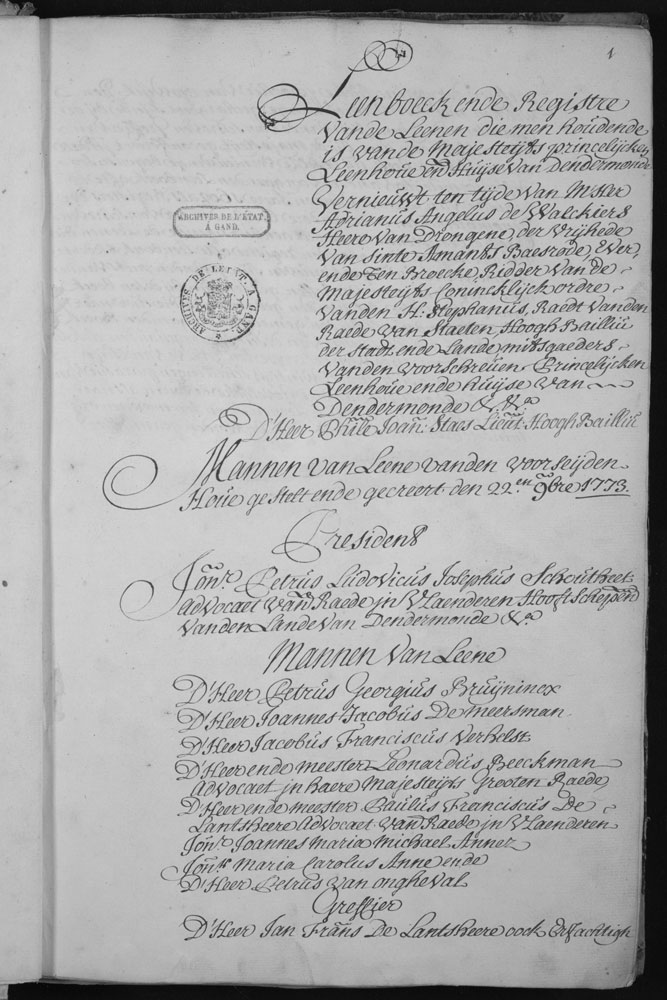 1
Leenboeck ende Registre
Vande Leenen die men houdende
is vande Majesteyts princelijcken
Leenhoue ende Huijse van Dendermonde
Vernieuwt ten tijde van Mster
Adrianus Angelus de Walckiers
Heere van Drongene der Vrijhede
van Sinte Amants Baesrode, Ever,
ende Ten Broecke, Ridder van de
Majesteyts Conincklijck ordre
vanden H: Stephanus, Raedt vanden
Raede van Staeten, Hoogh Bailliu
der Stadt ende Lande mitsgaeders
vanden voorschreuen Princelijcken
Leenhoue ende Huijse van
Dendermonde &a &a
D'Heer Phile Joan: Staes Lieut: Hoogh Bailliu
ARCHIVES DE L'ÉTAT.
À GAND.
ARCHIVES DE L'ETAT A GAND
Mannen van Leene vanden voorseijden
Houe gestelt ende gecreert den 22en 9bre 1773.
President
Jonr Petrus Ludovicus Josephus Schoutheet
advocaet vanden Raede in Vlaenderen Hooft Schepen
vanden Lande van Dendermonde &a
Mannen van Leene
D'Heer Petrus Georgius Bruijnincx
D'Heer Joannes Jacobus De Meersman
D'Heer Jacobus Franciscus Verhelst
D'Heer ende meester Leonardus Beeckman
advocaet in haere Majesteyts Grooten Raede
D'Heer ende meester Paulus Franciscus De
Lantsheere advocaet vanden Raede in Vlaenderen
Jonr Joannes Maria Michael Annez
Jonr Maria Carolus Anne ende
D'Heer Petrus van ongheval
Greffier
D'Heer Jan Frans De Lantsheere oock